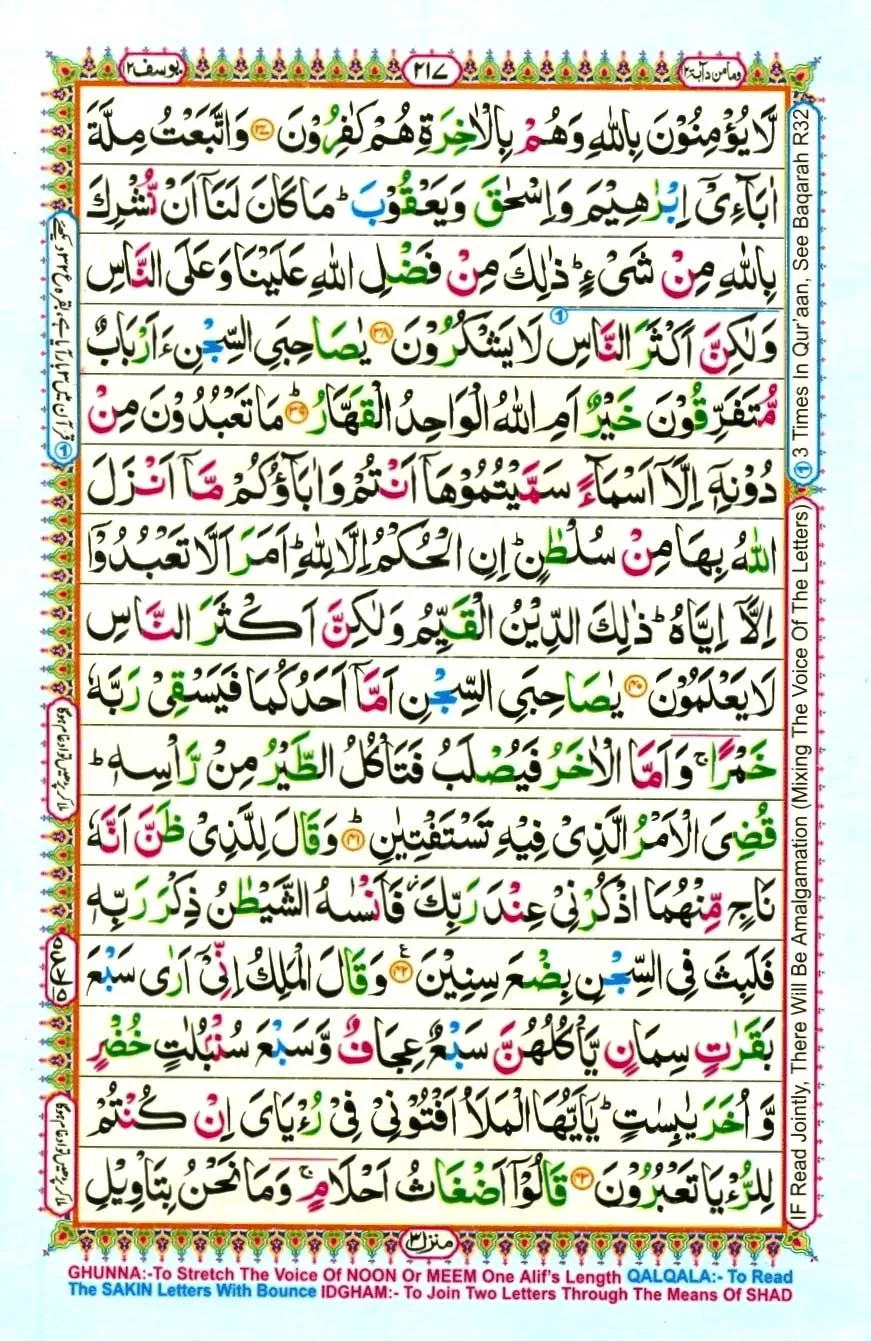 يوسف ١٢
٢١٧
ومامن دآبة ١٢
لَا يُؤْمِنُوْنَ بِاللّٰهِ وَهُمْ بِالْاٰخِرَةِ هُمْ كٰفِرُوْنَ ﴿٣٧﴾ وَاتَّبَعْتُ مِلَّةَ
اٰبَآءِیْۤ اِبْرٰهِيْمَ وَاِسْحٰقَ وَيَعْقُوْبَ ؕ مَا كَانَ لَنَاۤ اَنْ نُّشْرِكَ
بِاللّٰهِ مِنْ شَیْءٍ ؕ ذٰلِكَ مِنْ فَضْلِ اللّٰهِ عَلَيْنَا وَعَلَى النَّاسِ
وَلٰكِنَّ اَكْثَرَ النَّاسِ لَا يَشْكُرُوْنَ ﴿٣٨﴾ يٰصَاحِبَیِ السِّجْنِ ءَاَرْبَابٌ
مُّتَفَرِّقُوْنَ خَيْرٌ اَمِ اللّٰهُ الْوَاحِدُ الْقَهَّارُ ؕ ﴿٣٩﴾ مَا تَعْبُدُوْنَ مِنْ
دُوْنِهٖۤ اِلَّاۤ اَسْمَآءً سَمَّيْتُمُوْهَاۤ اَنْتُمْ وَاٰبَآؤُكُمْ مَّاۤ اَنْزَلَ
اللّٰهُ بِهَا مِنْ سُلْطٰنٍ ؕ اِنِ الْحُكْمُ اِلَّا لِلّٰهِ ؕ اَمَرَ اَلَّا تَعْبُدُوْۤا
اِلَّاۤ اِيَّاهُ ؕ ذٰلِكَ الدِّيْنُ الْقَيِّمُ وَلٰكِنَّ اَكْثَرَ النَّاسِ
لَا يَعْلَمُوْنَ ﴿٤٠﴾ يٰصَاحِبَیِ السِّجْنِ اَمَّاۤ اَحَدُكُمَا فَيَسْقِیْ رَبَّهٗ
خَمْرًا ۚ وَاَمَّا الْاٰخَرُ فَيُصْلَبُ فَتَاْكُلُ الطَّيْرُ مِنْ رَّاْسِهٖ ؕ
قُضِیَ الْاَمْرُ الَّذِیْ فِيْهِ تَسْتَفْتِيٰنِ ؕ ﴿٤١﴾ وَقَالَ لِلَّذِیْ ظَنَّ اَنَّهٗ
نَاجٍ مِّنْهُمَا اذْكُرْنِیْ عِنْدَ رَبِّكَ ؗ فَاَنْسٰىهُ الشَّيْطٰنُ ذِكْرَ رَبِّهٖ
فَلَبِثَ فِی السِّجْنِ بِضْعَ سِنِيْنَ ﴿٤٢﴾ ع وَقَالَ الْمَلِكُ اِنِّیْۤ اَرٰى سَبْعَ
بَقَرٰتٍ سِمَانٍ يَّاْكُلُهُنَّ سَبْعٌ عِجَافٌ وَّسَبْعَ سُنْۢبُلٰتٍ خُضْرٍ
وَّاُخَرَ يٰبِسٰتٍ ؕ يٰۤاَيُّهَا الْمَلَاُ اَفْتُوْنِیْ فِیْ رُءْيَایَ اِنْ كُنْتُمْ
لِلرُّءْيَا تَعْبُرُوْنَ ﴿٤٣﴾ قَالُوْۤا اَضْغَاثُ اَحْلَامٍ ۚ وَمَا نَحْنُ بِتَاْوِيْلِ
منزل ٣
① 3 Times In Qur'aan, See Baqarah R32
IF Read Jointly, There Will Be Amalgamation (Mixing The Voice Of The Letters)
ملا کر پڑھیں تو ادغام ہوگا
ملا کر پڑھیں تو ادغام ہوگا
GHUNNA:-To Stretch The Voice Of NOON Or MEEM One Alif's Length QALQALA:- To Read
The SAKIN Letters With Bounce IDGHAM:- To Join Two Letters Through The Means Of SHAD